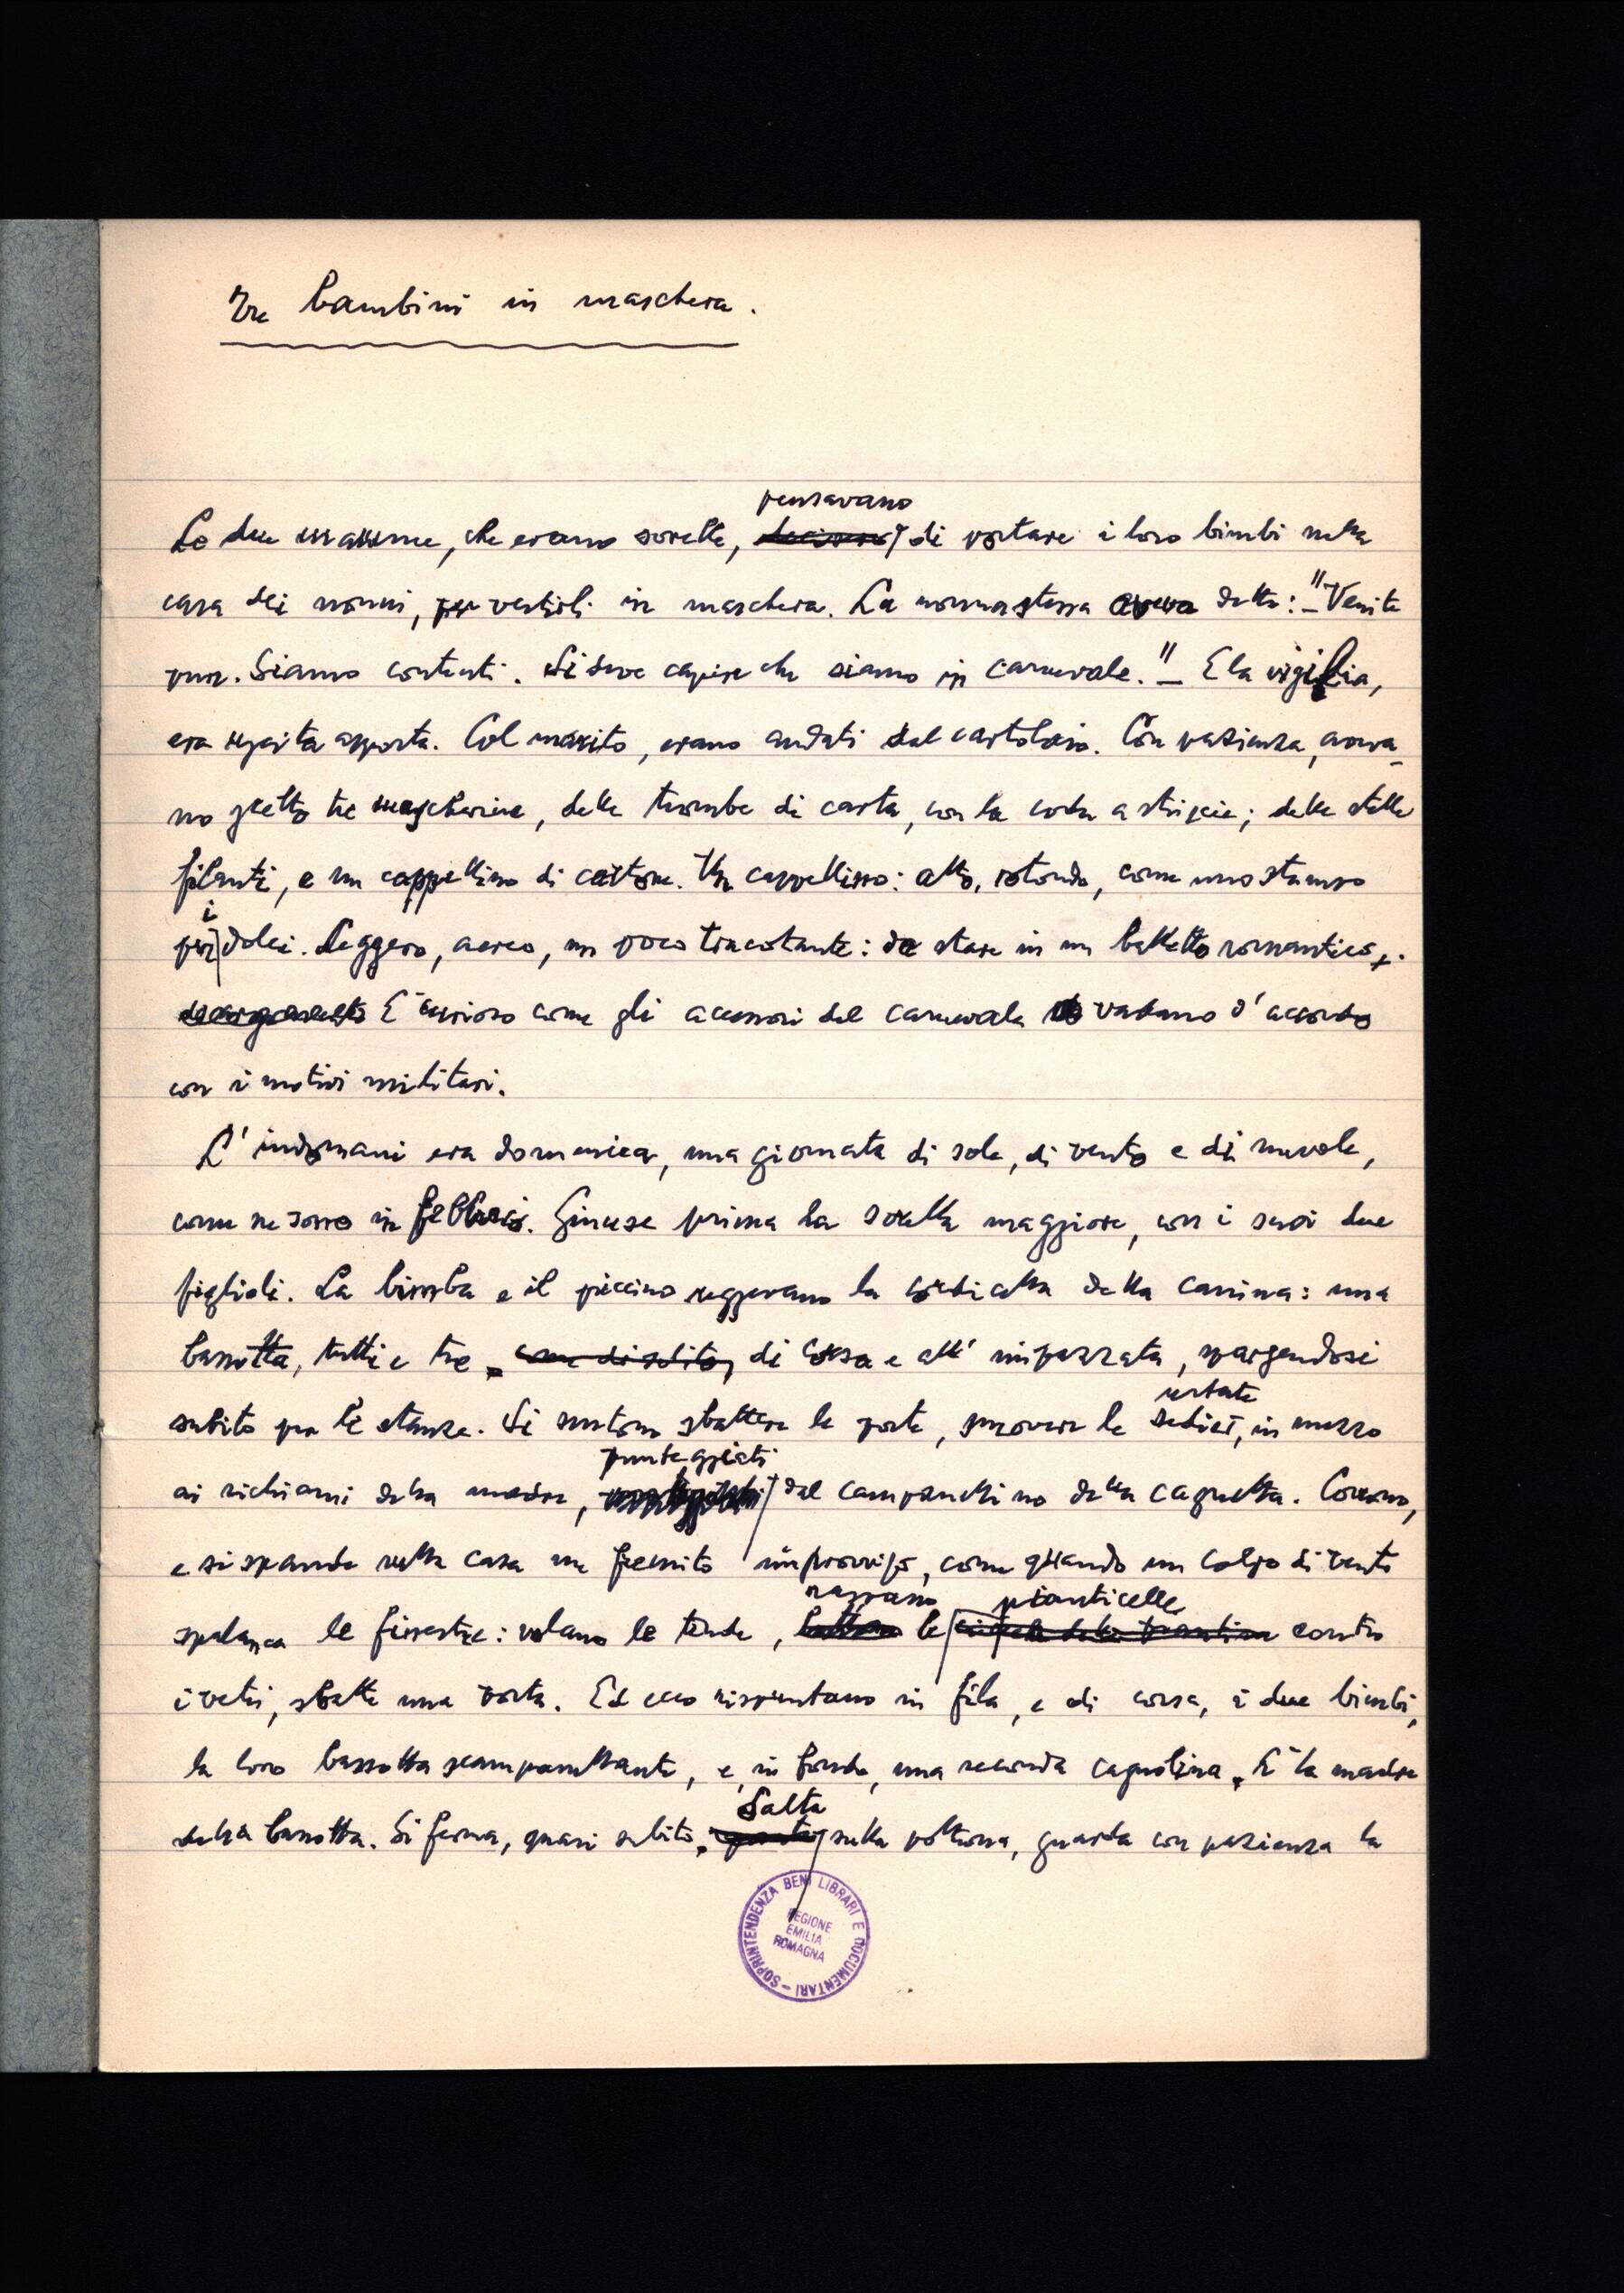 Tre bambini in maschera.
pensavano
Le due mamme, che erano sorelle, decisero di portare i loro bimbi nella
casa dei nonni, per vestirli in maschera. La nonna stessa aveva detto: "- Venite
pure. Siamo contenti. Si deve capire che siamo in carnevale." - E la vigilia,
era uscita apposta. Col marito, erano andati dal cartolaio. Con pazienza, aveva-
no scelto tre mascherine, delle trombe di carta, con la coda a striscie; delle stelle
filanti, e un cappellino di cartone. Un cappellino: alto, rotondo, come uno stampo
i
per dolci. Leggero, aereo, un poco tracotante: da stare in un balletto romantico.
E' curioso come gli accessori del carnevale vadano d'accordo
con i motivi militari.
L'indomani era domenica, una giornata di sole, di vento e di nuvole,
come ne sono in febbraio. Giunse prima la sorella maggiore, con i suoi due
figlioli. La bimba e il piccino reggevano la cordicella della canina: una
bassotta, tutti e tre, come di solito, di corsa e all'impazzata, spargendosi
urtate
subito per le stanze. Si sentono sbattere le porte, muovere le sedie, in mezzo
punteggiati
ai richiami della madre, dal campanellino della cagnetta. Corrono,
e si spande nella casa un fremito improvviso, come quando un colpo di vento
raspano pianticelle
spalanca le finestre: volano le tende, battono le contro
i vetri, sbatte una porta. Ed ecco rispuntano in fila, e di corsa, i due bimbi,
la loro bassotta scampanellante, e, in fondo, una seconda cagnolina. E' la madre
Salta
della bassotta. Si ferma, quasi subito, sulla poltrona, guarda con pazienza la
SOPRINTENDENZA BENI LIBRARI E DOCUMENTARI -
REGIONE
EMILIA
ROMAGNA